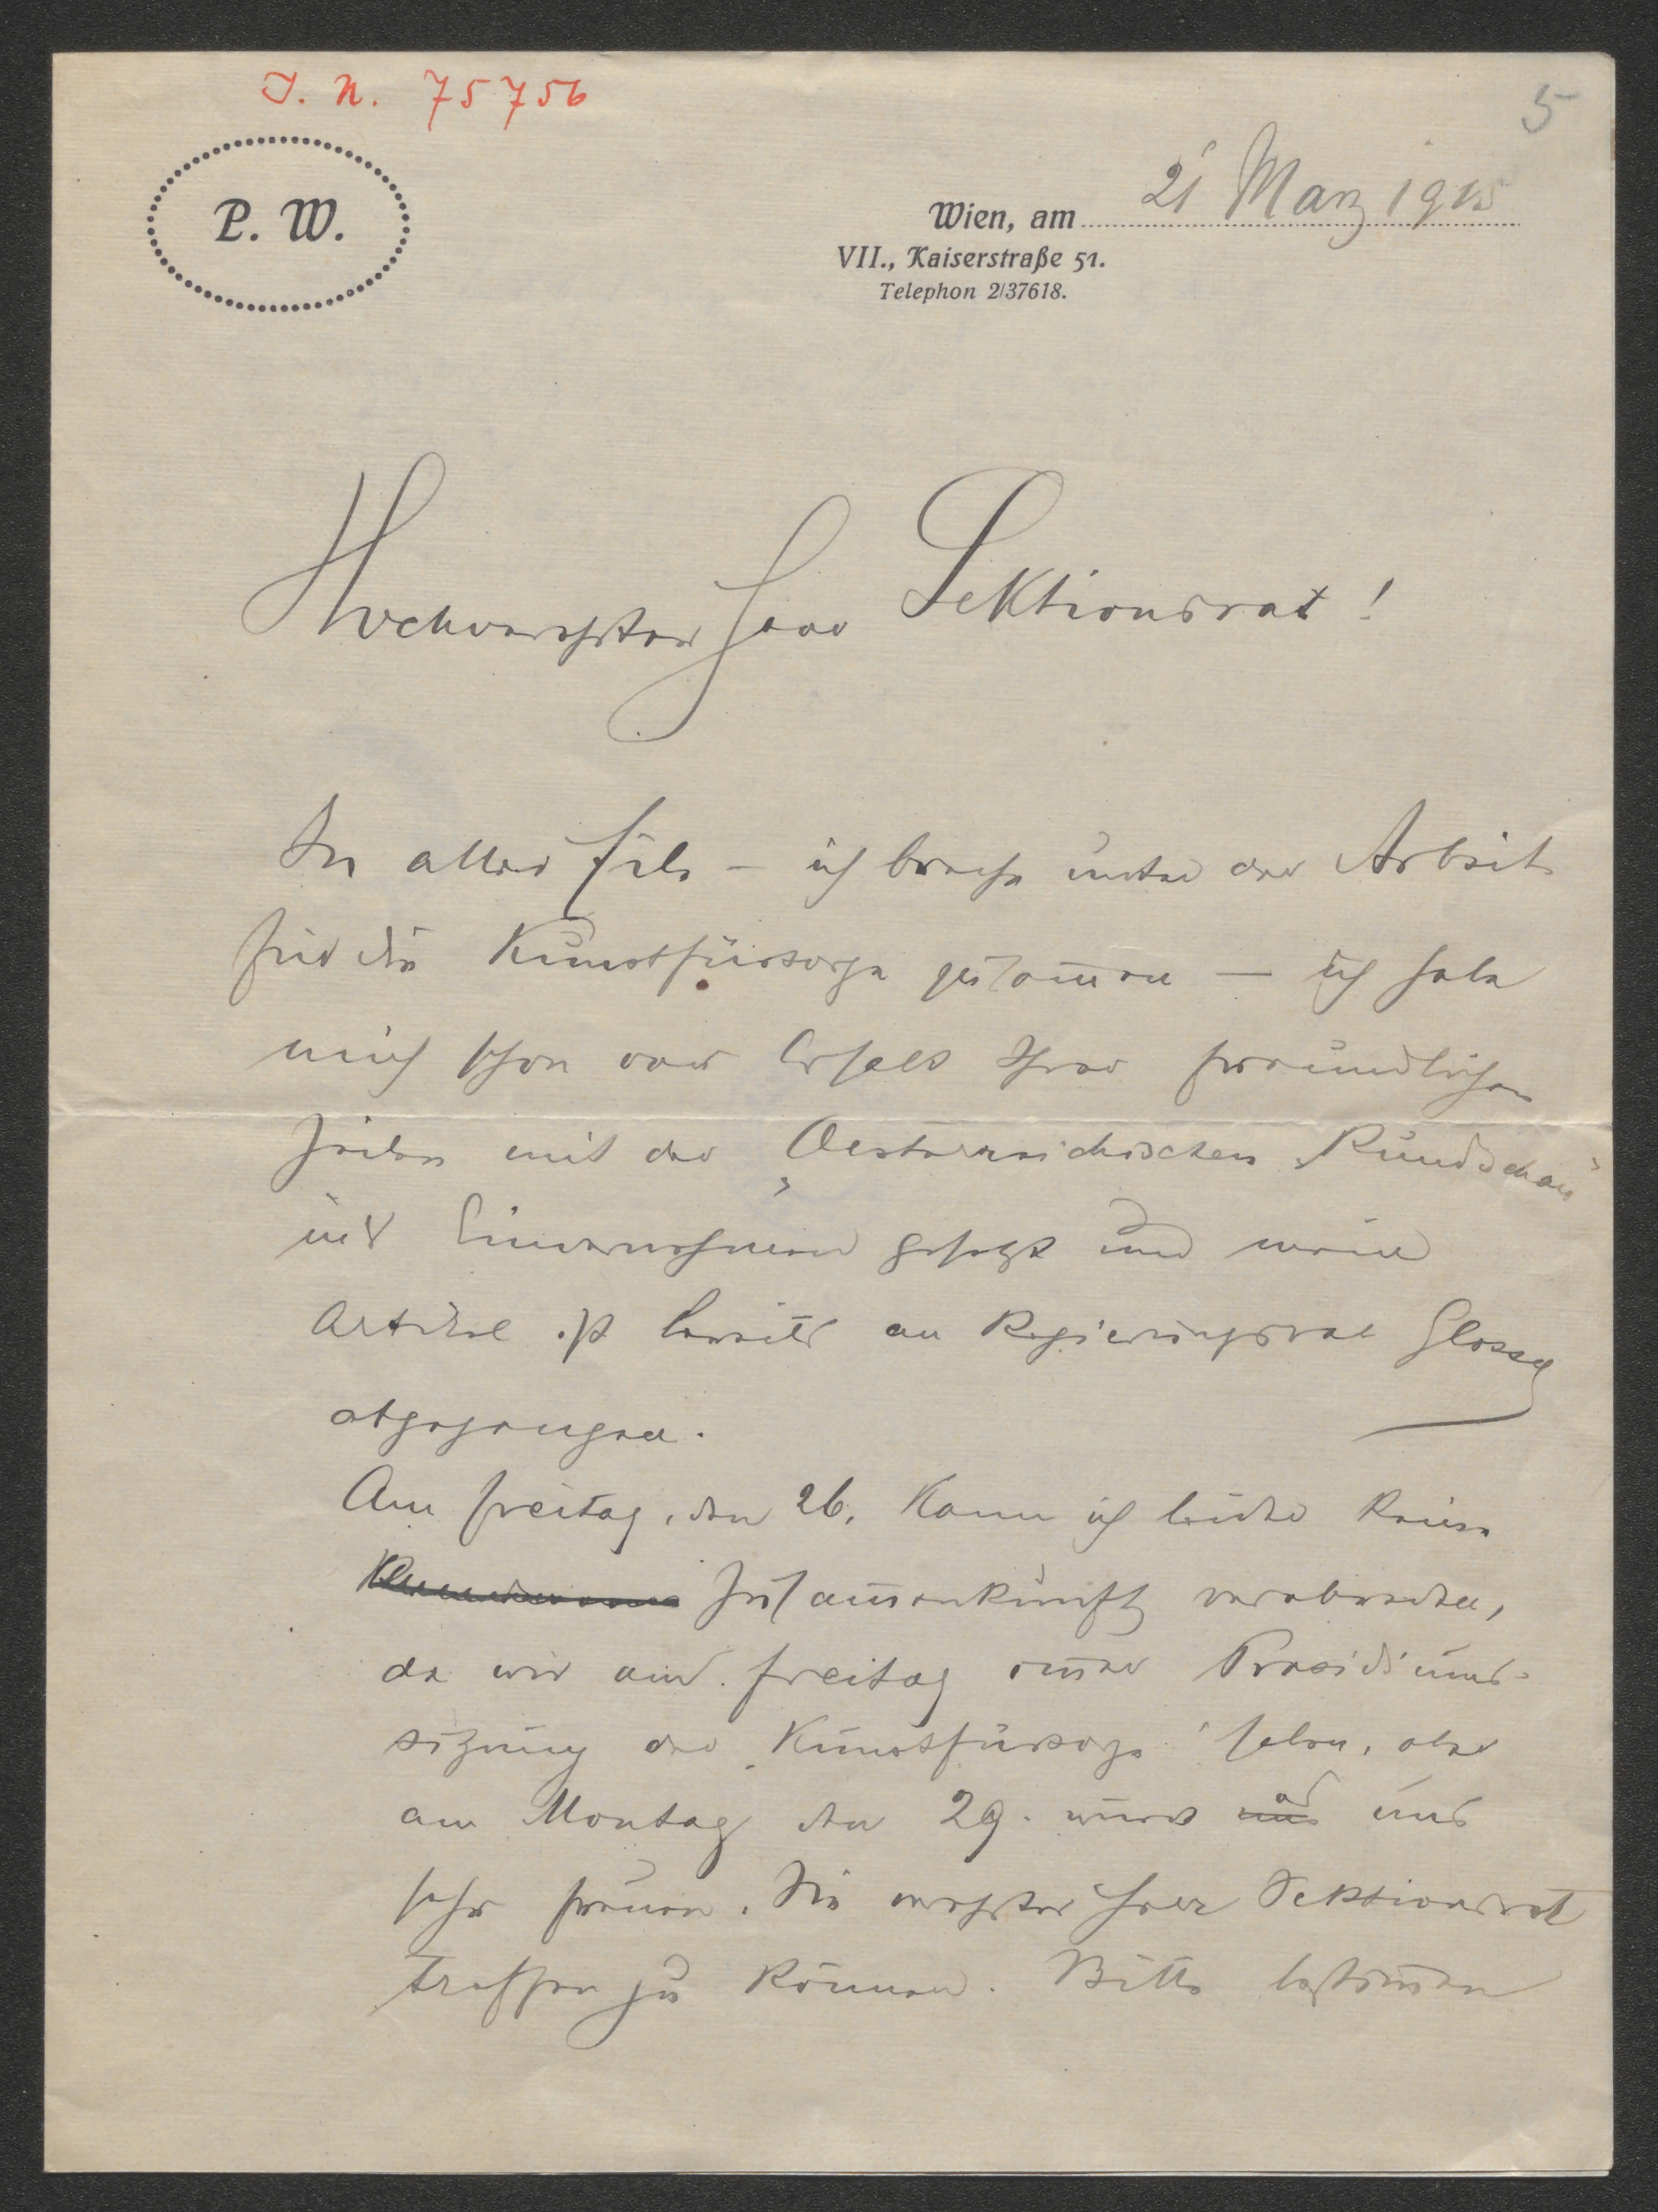 I. N. 75756
5
P. W.
Wien, am 21 März 1915
VII., Kaiserstraße 51.
Telephon 2/37618.
Hochverehrter Herr Sektionsrat!
In aller Eile – ich breche unter der Arbeit
für die Kunstfürsorge zusam̅en – ich habe
mich schon vor Erhalt Ihrer freundlichen
Zeilen mit der „Oesterreichischen Rundschau"
ins Einvernehmen gesetzt und mein
Artikel ist bereits an Regierungsrat Glossy
abgegangen.
Am Freitag, den 26. kann ich leider keine
Zusam̅enkunft verabreden,
da wir am Freitag im̅er Präsidiums-
sitzung der „Kunstfürsorge" haben, aber
am Montag den 29. würd es uns
sehr freuen, Sie verehrter Herr Sektionsrat
treffen zu können. Bitte bestim̅en